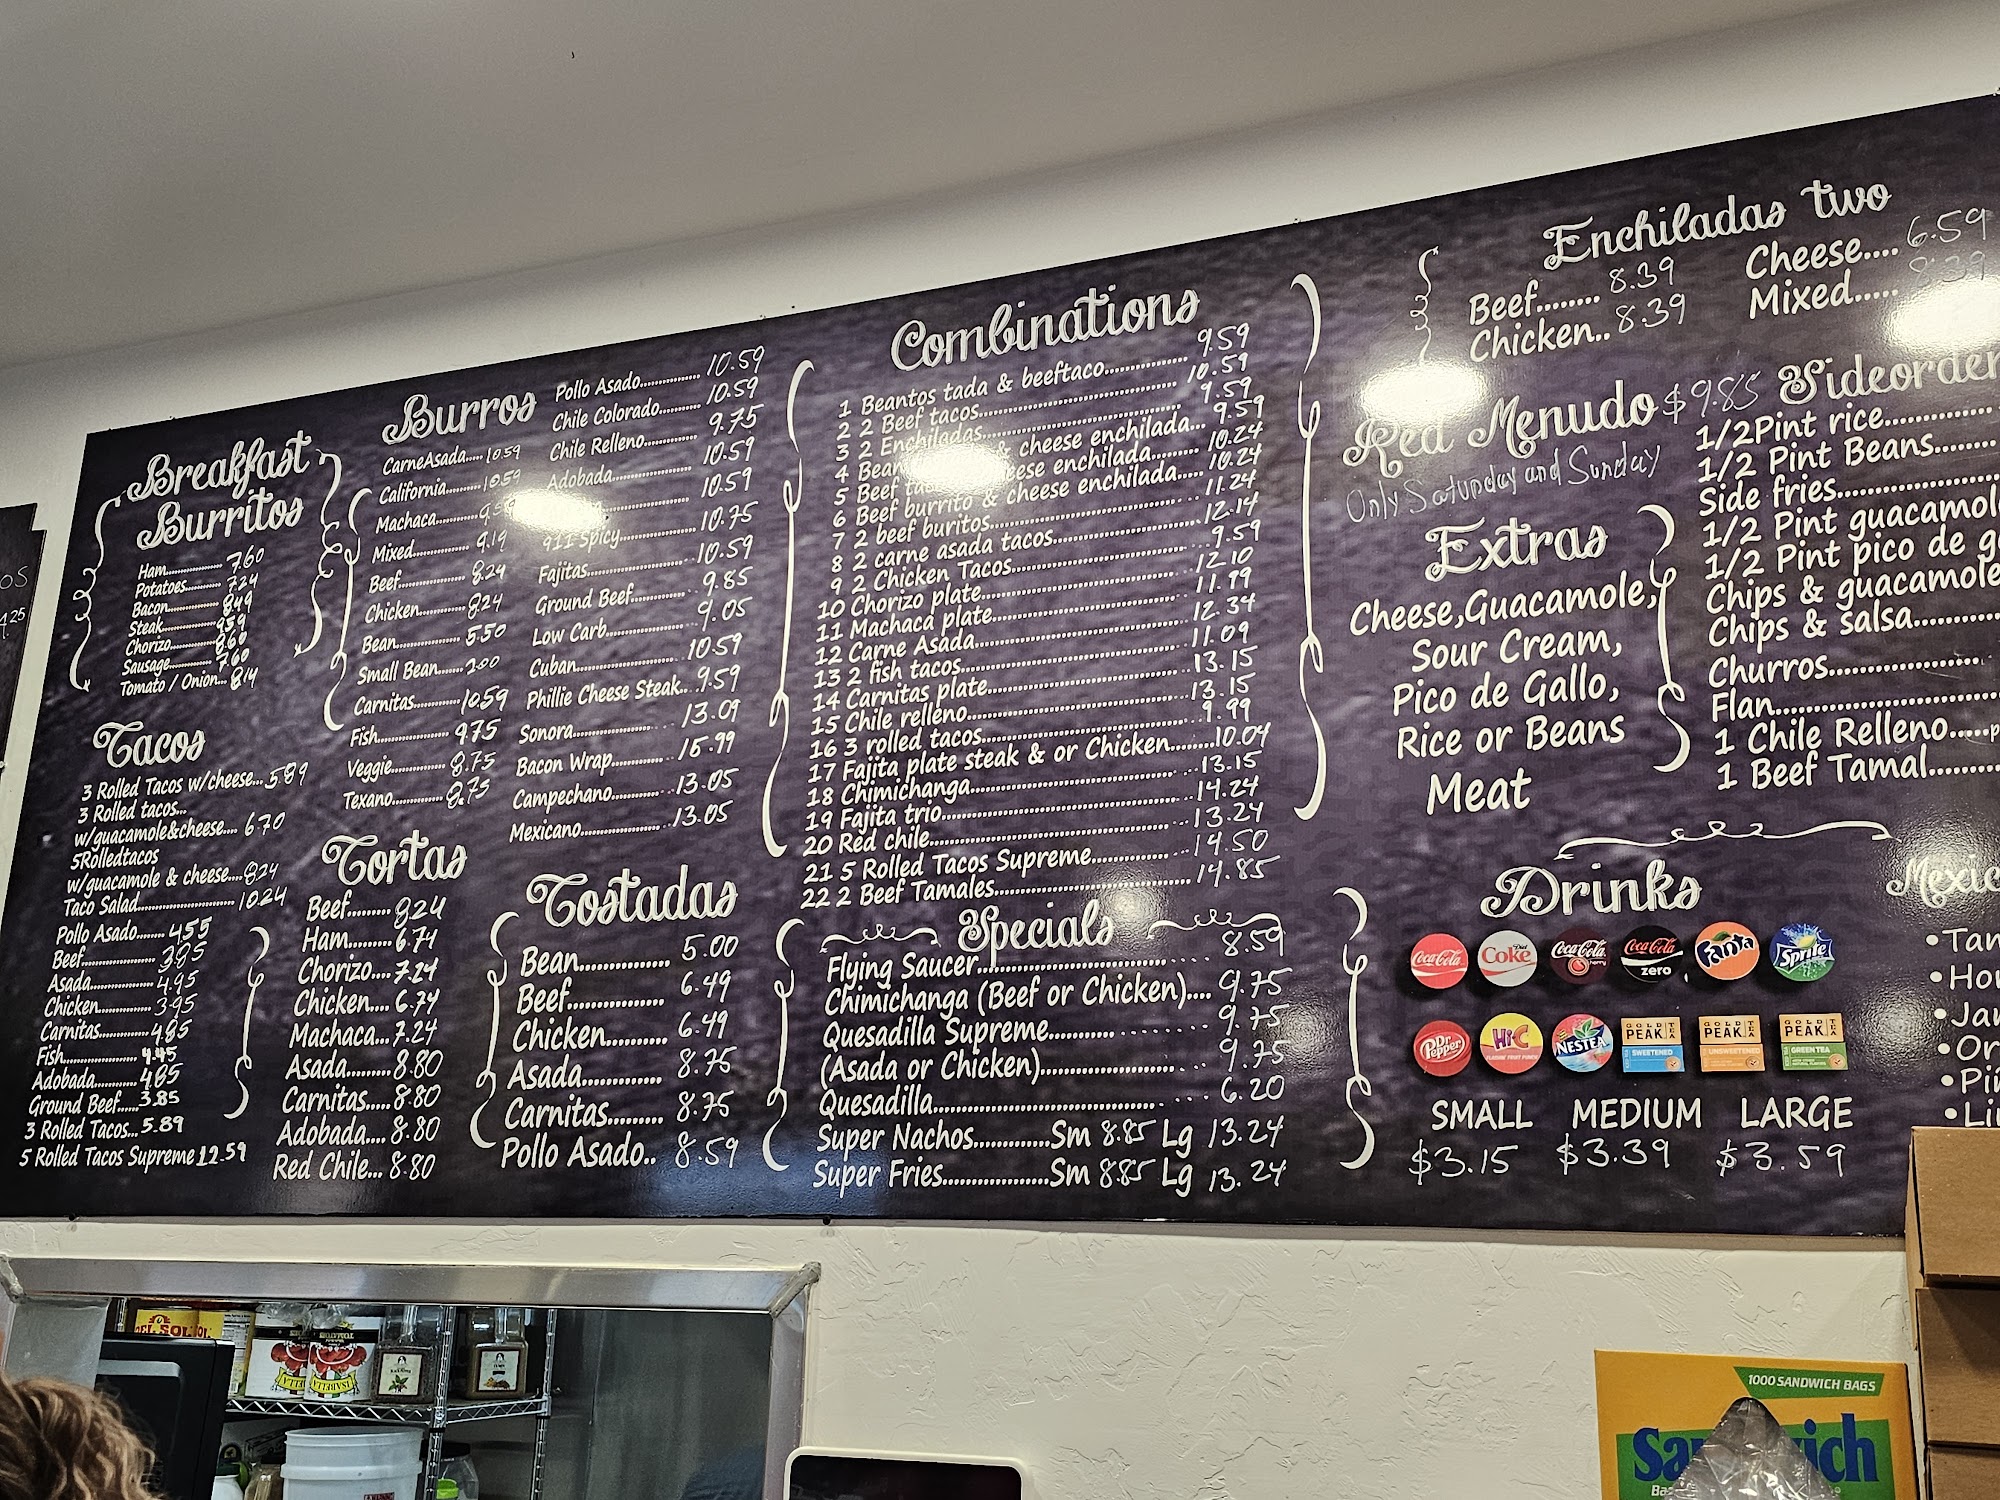 Breakfast
Burritos
Ham........ 7.60
Potatoes........ 7.24
Bacon........ 8.49
Steak........ 9.59
Chorizo........ 8.60
Sausage........ 7.60
Tomato / Onion... 8.14
Tacos
3 Rolled Tacos w/cheese... 5.89
3 Rolled tacos...
w/guacamole&cheese.... 6.70
5Rolledtacos
w/guacamole & cheese.... 8.24
Taco Salad........ 10.24
Pollo Asado........ 4.55
Beef........ 3.85
Asada........ 4.95
Chicken........ 3.95
Carnitas........ 4.85
Fish........ 4.45
Adobada........ 4.85
Ground Beef...... 3.85
3 Rolled Tacos... 5.89
5 Rolled Tacos Supreme 12.59
Burros
CarneAsada..... 10.59
California........ 10.59
Machaca........
Mixed........ 9.19
Beef........ 8.24
Chicken........ 8.24
Bean........ 5.50
Small Bean..... 2.00
Carnitas........ 10.59
Fish........ 9.75
Veggie........ 8.75
Texano........ 8.75
Pollo Asado........ 10.59
Chile Colorado........ 10.59
Chile Relleno........ 9.75
Adobada........ 10.59
10.59
911 Spicy........ 10.75
Fajitas........ 10.59
Ground Beef........ 9.85
Low Carb........ 9.05
Cuban........ 10.59
Phillie Cheese Steak... 9.59
Sonora........ 13.09
Bacon Wrap........ 15.99
Campechano........ 13.05
Mexicano........ 13.05
Tortas
Beef........ 8.24
Ham........ 6.74
Chorizo.... 7.24
Chicken.... 6.74
Machaca... 7.24
Asada........ 8.80
Carnitas..... 8.80
Adobada.... 8.80
Red Chile... 8.80
Tostadas
Bean........ 5.00
Beef........ 6.49
Chicken........ 6.49
Asada........ 8.75
Carnitas........ 8.75
Pollo Asado.. 8.59
Combinations
1 Beantos tada & beeftaco........ 9.59
2 2 Beef tacos........ 10.59
3 2 Enchiladas........ 9.59
4 & cheese enchilada... 9.59
5 Beef cheese enchilada........ 10.24
6 Beef burrito & cheese enchilada..... 10.24
7 2 beef buritos........ 11.24
8 2 carne asada tacos........ 12.14
9 2 Chicken Tacos........ 9.59
10 Chorizo plate........ 12.10
11 Machaca plate........ 11.99
12 Carne Asada........ 12.34
13 2 fish tacos........ 11.09
14 Carnitas plate........ 13.15
15 Chile relleno........ 13.15
16 3 rolled tacos........ 9.99
17 Fajita plate steak & or Chicken....... 10.04
18 Chimichanga........ 13.15
19 Fajita trio........ 14.24
20 Red chile........ 13.24
21 5 Rolled Tacos Supreme........ 14.50
22 2 Beef Tamales........ 14.85
Specials
Flying Saucer........ 8.59
Chimichanga (Beef or Chicken).... 9.75
Quesadilla Supreme........ 9.75
(Asada or Chicken)........ 9.75
Quesadilla........ 6.20
Super Nachos............Sm 8.85 Lg 13.24
Super Fries............Sm 8.85 Lg 13.24
Enchiladas two
Beef........ 8.39
Chicken.. 8.39
Cheese.... 6.59
Mixed..... 8.39
Red Menudo $9.85
Only Saturday and Sunday
Extras
Cheese,Guacamole,
Sour Cream,
Pico de Gallo,
Rice or Beans
Meat
1/2Pint rice........
1/2 Pint Beans........
Side fries........
1/2 Pint
1/2 Pint pico de
Chips & guacamole
Chips & salsa........
Churros........
Flan........
1 Chile Relleno.....
1 Beef Tamal........
Drinks
Coca-Cola
Diet Coke
Coca-Cola cherry
Coca-Cola zero
Fanta
Sprite
Dr Pepper
Hi-C
NESTEA
GOLD PEAK TEA SWEETENED
GOLD PEAK TEA UNSWEETENED
GOLD PEAK TEA GREEN TEA
SMALL MEDIUM LARGE
$3.15 $3.39 $3.59
1000 SANDWICH BAGS